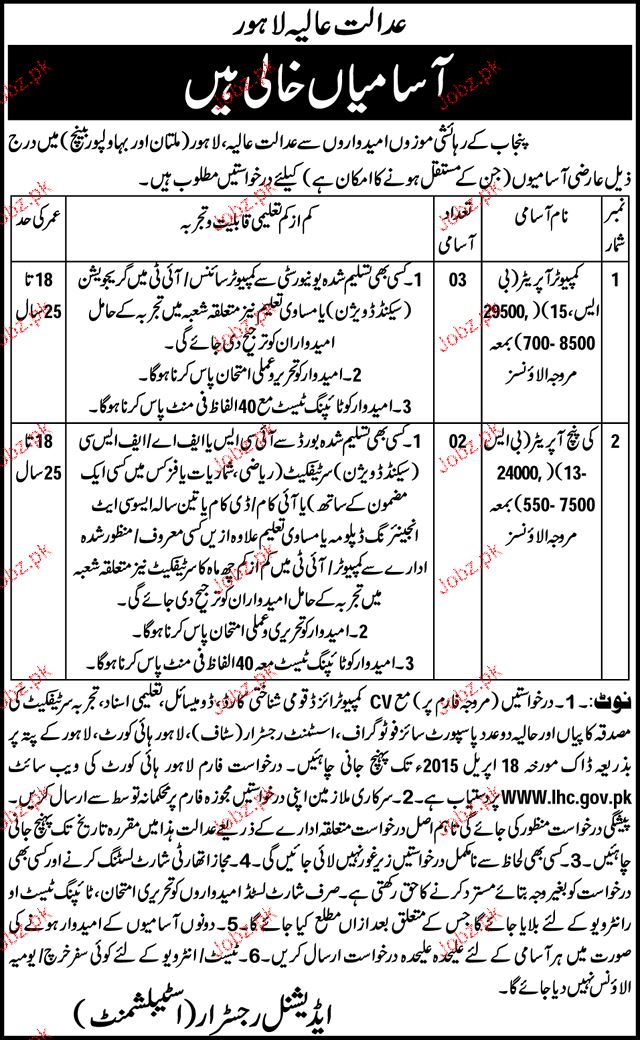 عدالت عالیہ لاہور
آسامیاں خالی ہیں
پنجاب کے رہائشی موزوں امیدواروں سے عدالت عالیہ، لاہور (ملتان اور بہاولپور بینچ) میں درج
ذیل عارضی آسامیوں (جن کے مستقل ہونے کا امکان ہے) کیلئے درخواستیں مطلوب ہیں۔
نمبر شمار
نام آسامی
تعداد آسامی
کم از کم تعلیمی قابلیت و تجربہ
عمر کی حد
1
کمپیوٹر آپریٹر (بی
ایس، 15) (29500,
8500 -700) بمعہ
مروجہ الاؤنسز
03
1۔ کسی بھی تسلیم شدہ یونیورسٹی سے کمپیوٹر سائنس/ آئی ٹی میں گریجویشن
(سیکنڈ ڈویژن) یا مساوی تعلیم نیز متعلقہ شعبہ میں تجربہ کے حامل
امیدواران کو ترجیح دی جائے گی۔
2۔ امیدوار کو تحریر و عملی امتحان پاس کرنا ہوگا۔
3۔ امیدوار کو ٹائپنگ ٹیسٹ مع 40 الفاظ فی منٹ پاس کرنا ہوگا۔
18 تا
25 سال
2
کی پنچ آپریٹر (بی ایس
-13) (24000,
7500 -550) بمعہ
مروجہ الاؤنسز
02
1۔ کسی بھی تسلیم شدہ بورڈ سے آئی سی ایس یا ایف اے/ ایف ایس سی
(سیکنڈ ڈویژن) سرٹیفکیٹ (ریاضی، شماریات یا فزکس میں کسی ایک
مضمون کے ساتھ) یا آئی کام/ ڈی کام یا تین سالہ ایسوسی ایٹ
انجینئرنگ ڈپلومہ یا مساوی تعلیم علاوہ ازیں کسی معروف/ منظور شدہ
ادارے سے کمپیوٹر/ آئی ٹی میں کم از کم چھ ماہ کا سرٹیفکیٹ نیز متعلقہ شعبہ
میں تجربہ کے حامل امیدواران کو ترجیح دی جائے گی۔
2۔ امیدوار کو تحریری و عملی امتحان پاس کرنا ہوگا۔
3۔ امیدوار کو ٹائپنگ ٹیسٹ معہ 40 الفاظ فی منٹ پاس کرنا ہوگا۔
18 تا
25 سال
نوٹ:۔ 1۔ درخواستیں (مروجہ فارم پر) مع CV کمپیوٹرائزڈ قومی شناختی کارڈ، ڈومیسائل، تعلیمی اسناد، تجربہ سرٹیفکیٹ کی
مصدقہ کاپیاں اور حالیہ دو عدد پاسپورٹ سائز فوٹوگراف، اسسٹنٹ رجسٹرار (سٹاف)، لاہور ہائی کورٹ، لاہور کے پتہ پر
بذریعہ ڈاک مورخہ 18 اپریل 2015ء تک پہنچ جانی چاہئیں۔ درخواست فارم لاہور ہائی کورٹ کی ویب سائٹ
WWW.lhc.gov.pk پر دستیاب ہے۔ 2۔ سرکاری ملازمین اپنی درخواستیں مجوزہ فارم پر محکمانہ توسط سے ارسال کریں۔
پیشگی درخواست منظور کی جائے گی تاہم اصل درخواست متعلقہ ادارے کے ذریعے عدالت ھذا میں مقررہ تاریخ تک پہنچ جانی
چاہئیں۔ 3۔ کسی بھی لحاظ سے نامکمل درخواستیں زیر غور نہیں لائی جائیں گی۔ 4۔ مجاز اتھارٹی شارٹ لسٹنگ کرنے اور کسی بھی
درخواست کو بغیر وجہ بتائے مسترد کرنے کا حق رکھتی ہے۔ صرف شارٹ لسٹڈ امیدواروں کو تحریری امتحان، ٹائپنگ ٹیسٹ او
رانٹرویو کے لئے بلایا جائے گا جس کے متعلق بعد ازاں مطلع کیا جائے گا۔ 5۔ دونوں آسامیوں کے امیدوار ہونے کی
صورت میں ہر آسامی کے لئے علیحدہ علیحدہ درخواست ارسال کریں۔ 6۔ ٹیسٹ/ انٹرویو کے لئے کوئی سفر خرچ/ یومیہ
الاؤنس نہیں دیا جائے گا۔
ایڈیشنل رجسٹرار (اسٹیبلشمنٹ)
Jobz.pk